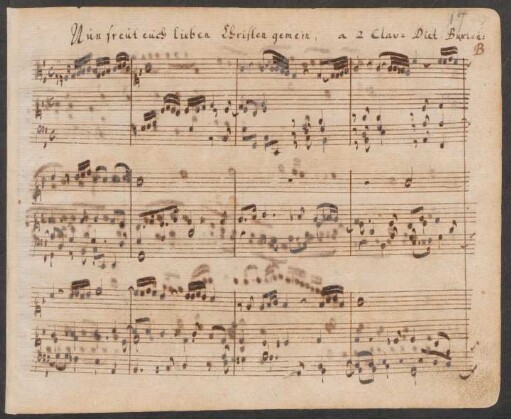 17
Nun freut euch lieben Christen gemein, a 2 Clav. Diet Buxteh:
B